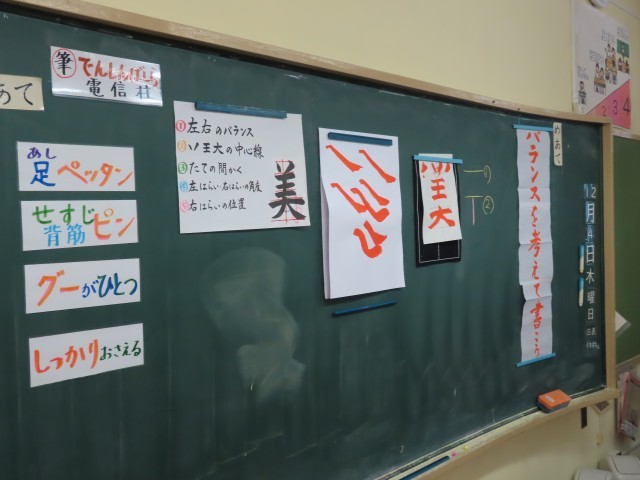 めあて
バランスを考えて書こう
12月
日木曜日
ソ王大
①
②
①左右のバランス
②ソ王大の中心線
③たての間かく
④左はらい・右はらいの角度
⑤右はらいの位置
美
筆でんしんばしら
電信柱
あて
あし
足ペッタン
せすじ
背筋ピン
グーがひとつ
しっかりおさえる
2 3 4